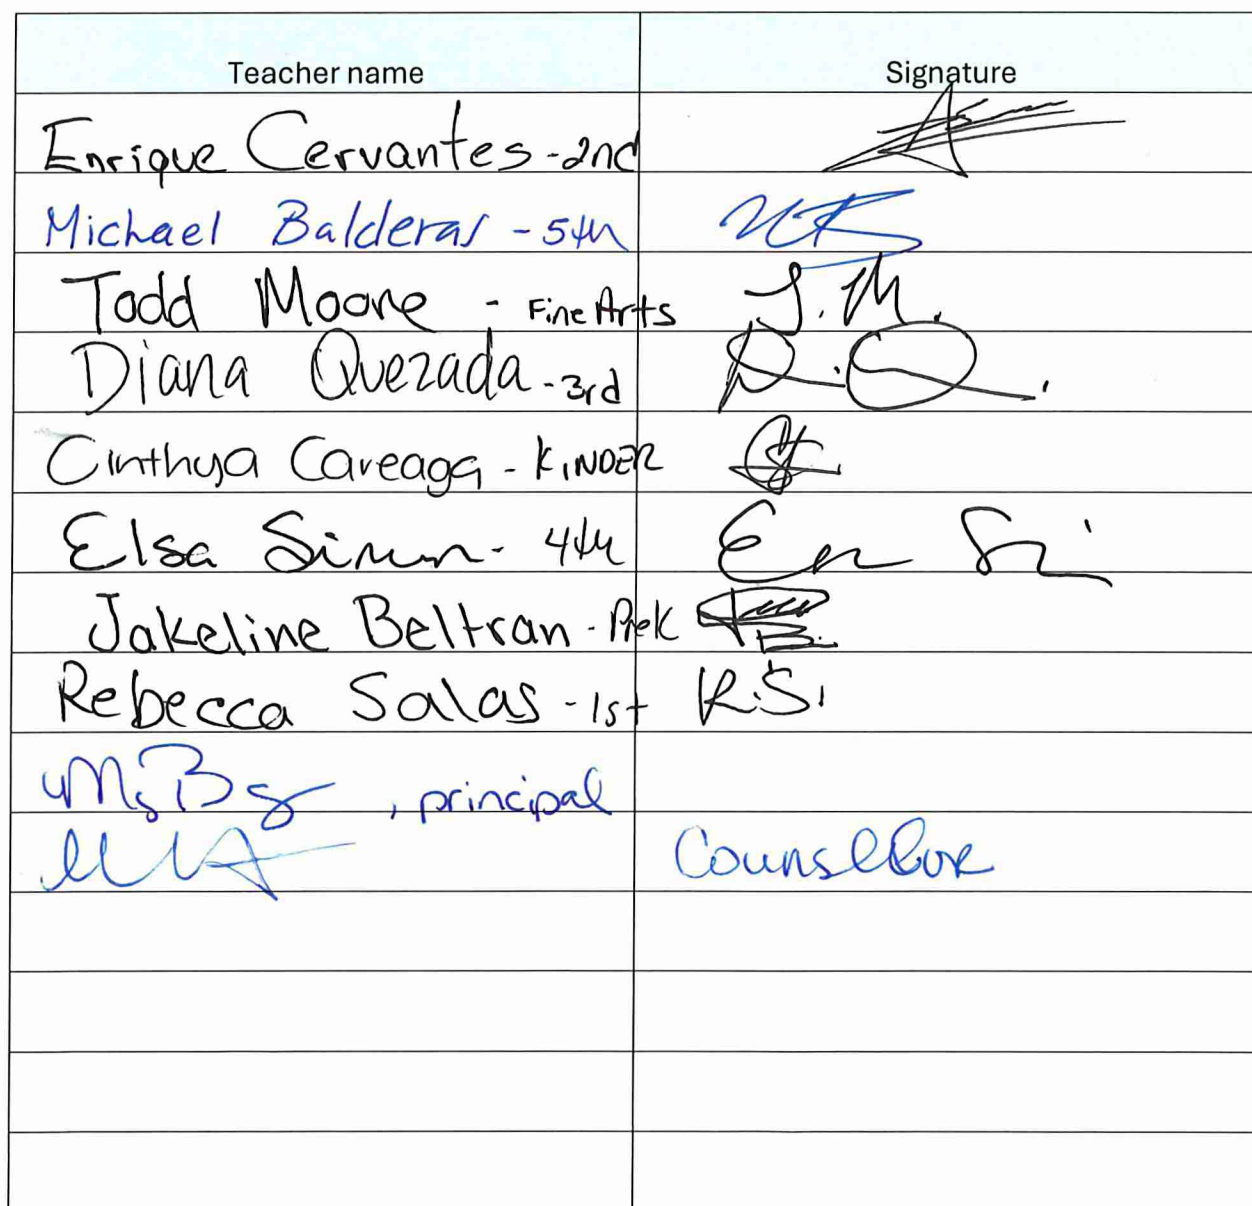 Teacher name Signature
Enrique Cervantes - 2nd
Michael Balderas - 5th
Todd Moore - Fine Arts T. M.
Diana Quezada - 3rd D. Q.
Cinthya Careaga - KINDER
Elsa - 4th
Jakeline Beltran - PreK
Rebecca Salas - 1st R.S.
, principal
Counsellor